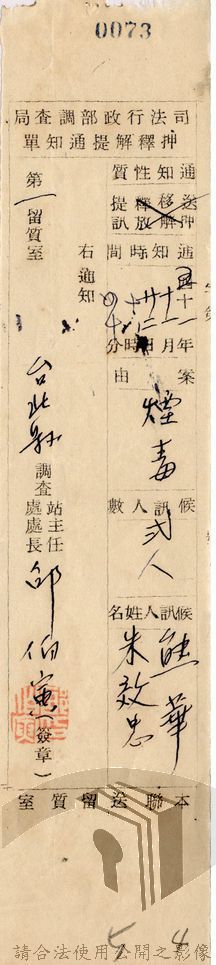 0073
司法行政部調查局
押釋解提通知單
通知性質
送押
移解
釋放
提訊
通知時間
五十一年
十一月
廿二日
時
分
案由
煙毒
候訊人數
弍人
候訊人姓名
熊華
朱效忠
右通知
第一留質室
台北縣調查
站主任
處處長
邱伯
(簽章)
本聯送留質室
請合法使用公開之影像